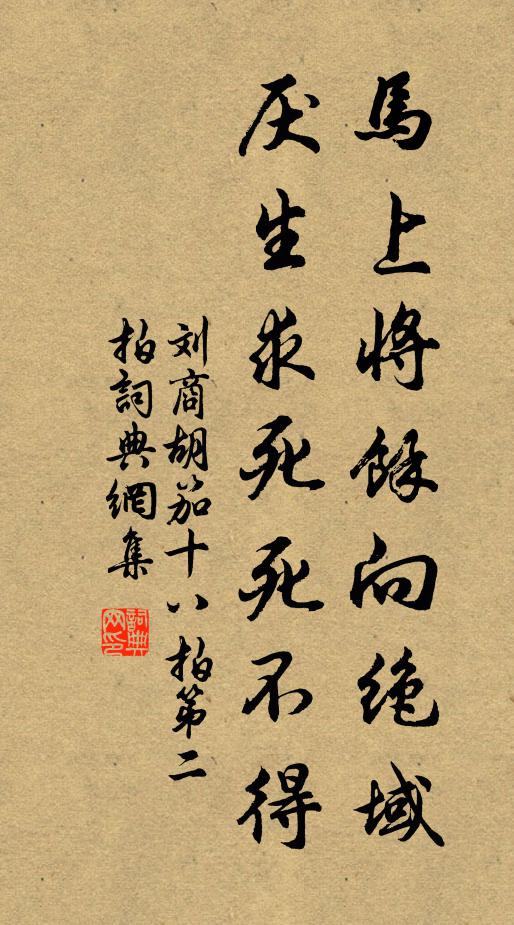 馬上將餘向絕域
厌生求死死不得
刘商胡笳十八拍第二
拍詞典網集
詞典
网印